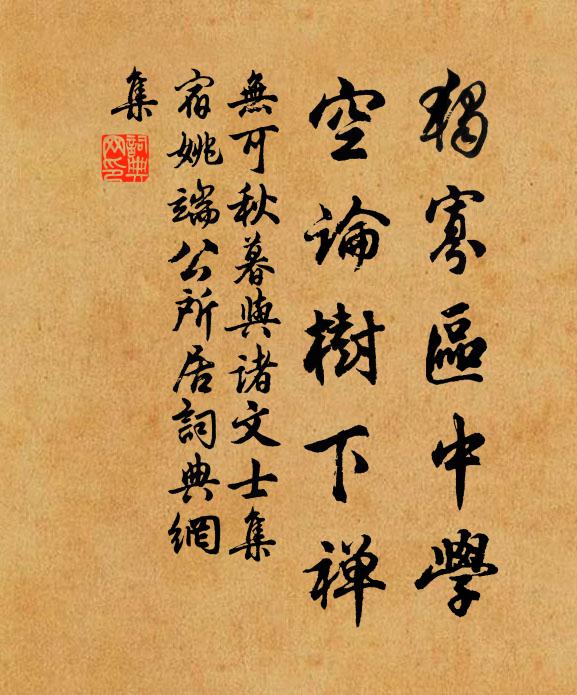 獨寡區中學
空論樹下禪
無可秋暮與諸文士集
宿姚端公所居詞典網
集
詞典網印